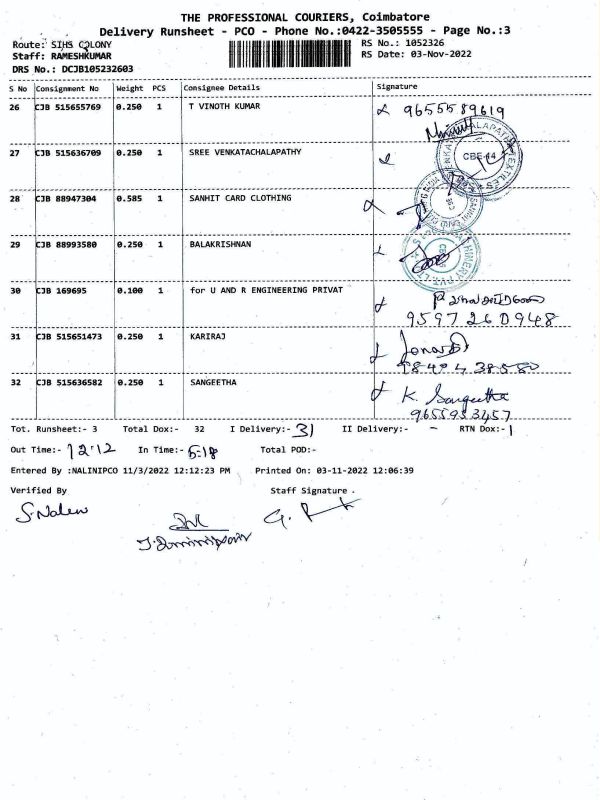 THE PROFESSIONAL COURIERS, Coimbatore
Delivery Runsheet - PCO - Phone No.:0422-3505555 - Page No.:3
Route: SIHS COLONY RS No.: 1052326
Staff: RAMESHKUMAR RS Date: 03-Nov-2022
DRS No.: DCJB105232603
S No Consignment No Weight PCS Consignee Details Signature
26 CJB 515655769 0.250 1 T VINOTH KUMAR 9655589619
27 CJB 515636709 0.250 1 SREE VENKATACHALAPATHY
CBE-14
28 CJB 88947304 0.585 1 SANHIT CARD CLOTHING
29 CJB 88993580 0.250 1 BALAKRISHNAN
30 CJB 169695 0.100 1 for U AND R ENGINEERING PRIVAT
9597260948
31 CJB 515651473 0.250 1 KARIRAJ
32 CJB 515636582 0.250 1 SANGEETHA K. Sangeetha
9655953457
Tot. Runsheet:- 3 Total Dox:- 32 I Delivery:- 31 II Delivery:- - RTN Dox:- 1
Out Time:- 12:12 In Time:- 5:18 Total POD:-
Entered By :NALINIPCO 11/3/2022 12:12:23 PM Printed On: 03-11-2022 12:06:39
Verified By Staff Signature .